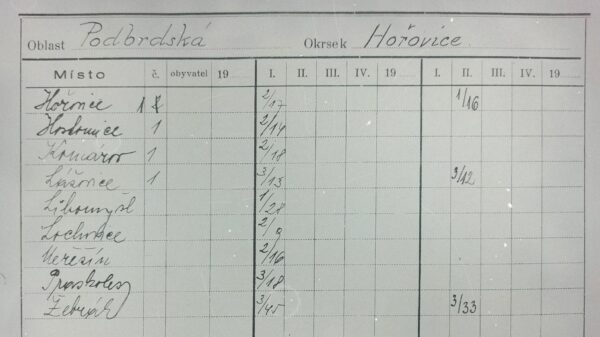 Oblast Podbrdská Okrsek Hořovice
Místo č. obyvatel 19 I. II. III. IV. 19 I. II. III. IV. 19
Hořovice 1 2/17 1/16
Hostomice 1 2/14
Komárov 1 2/18
Lážovice 1 3/13 3/12
Libomyšl 1/28
Lochovice 2/9
Neřežín 2/16
Praskolesy 3/18
Žebrák 3/45 3/33